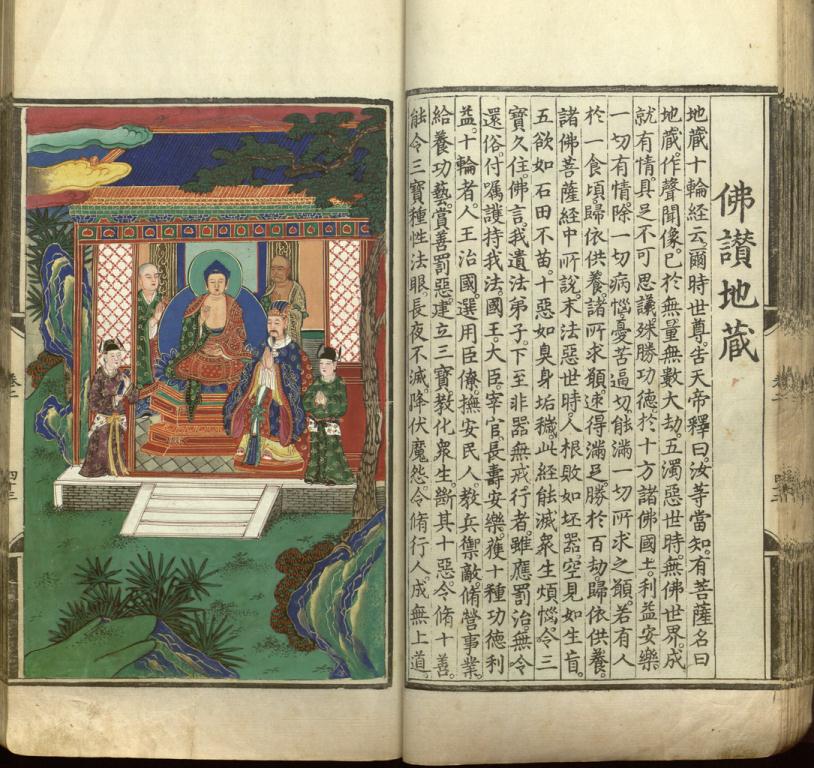 佛讃地蔵
地蔵十輪経云。爾時世尊。告天帝釋曰。汝等當知。有菩薩名曰
地蔵。作聲聞像。已於無量無數大劫。五濁惡世時。無佛世界。成
就有情。具足不可思議殊勝功德。於十方諸佛國土。利益安樂
一切有情。除一切病惱憂苦逼切。能滿一切所求之願。若有人
於一食頃。歸依供養。諸所求願。速得滿足。勝於百劫歸依供養。
諸佛菩薩経中所說。末法惡世時。人根敗如坯器。空見如生盲。
五欲如石田不苗。十惡如臭身垢穢。此経能滅衆生煩惱。令三
寳久住。佛言。我遺法弟子。下至非器無戒行者。雖應罰治。無令
還俗。付囑護持我法。國王。大臣。宰官。長壽安樂。獲十種功德利
益。十輪者。人王治國。選用臣僚。撫安民人。教兵禦敵。脩營事業。
給養功藝。賞善罰惡。建立三寳。教化衆生。斷其十惡。令脩十善。
能令三寳種性法眼。長夜不滅。降伏魔怨。令脩行人。成無上道。
卷三
四十三